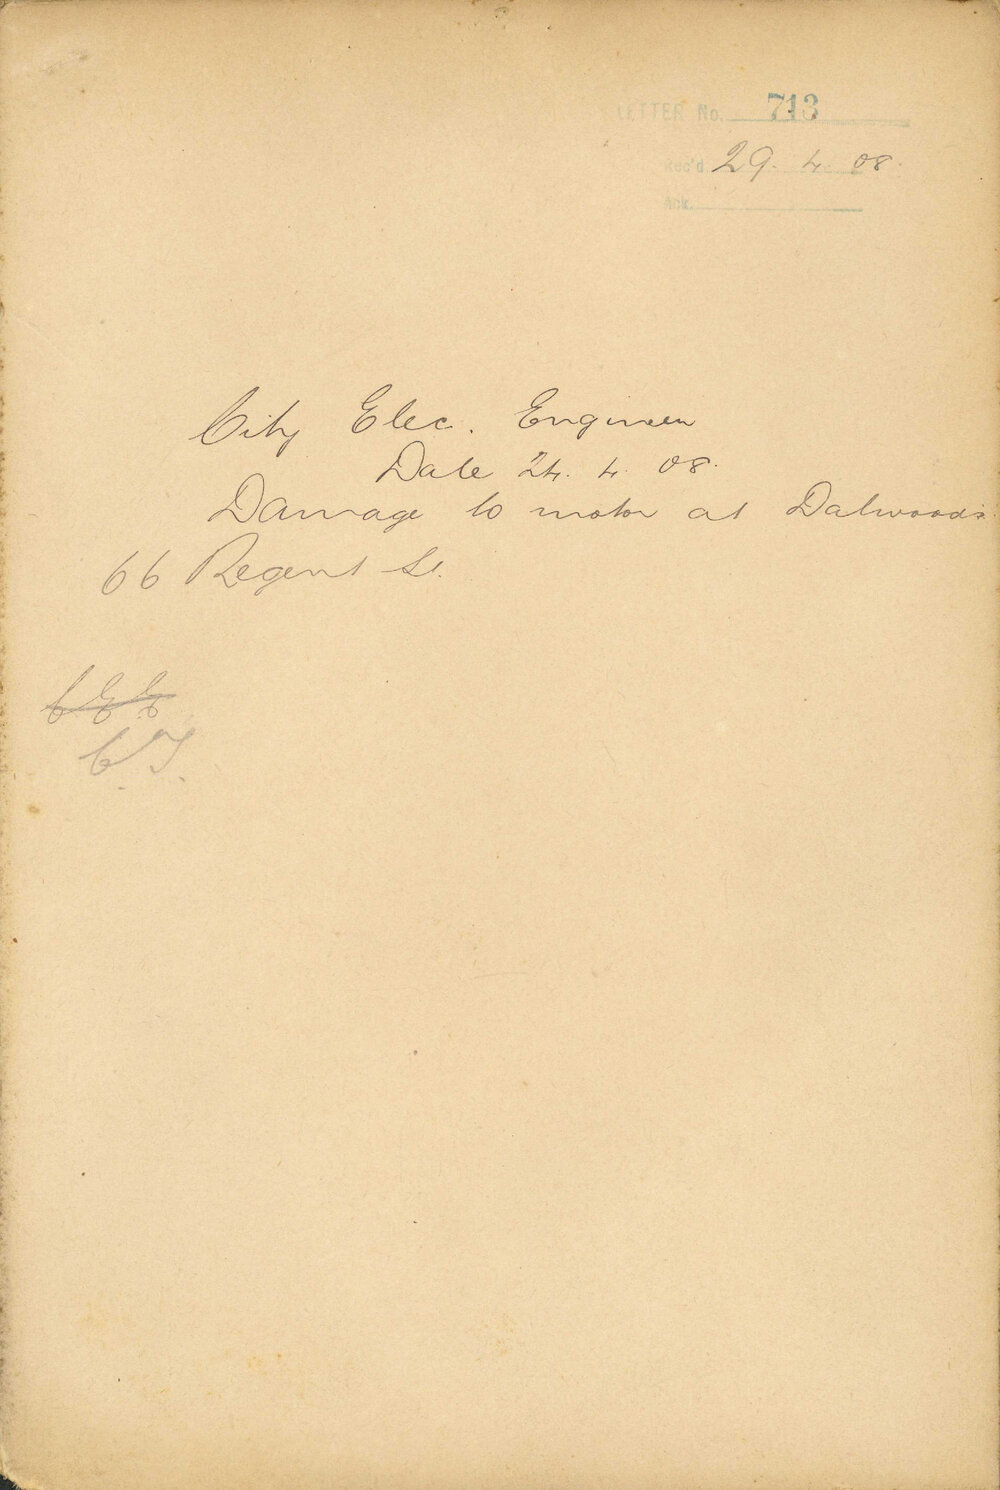 LETTER No. 713
Rec'd 29. 4. 08.
Ack.
City Elec. Engineer
Date 24. 4. 08.
Damage to motor at Dalwoods
66 Regent St.
CEE
C.T.